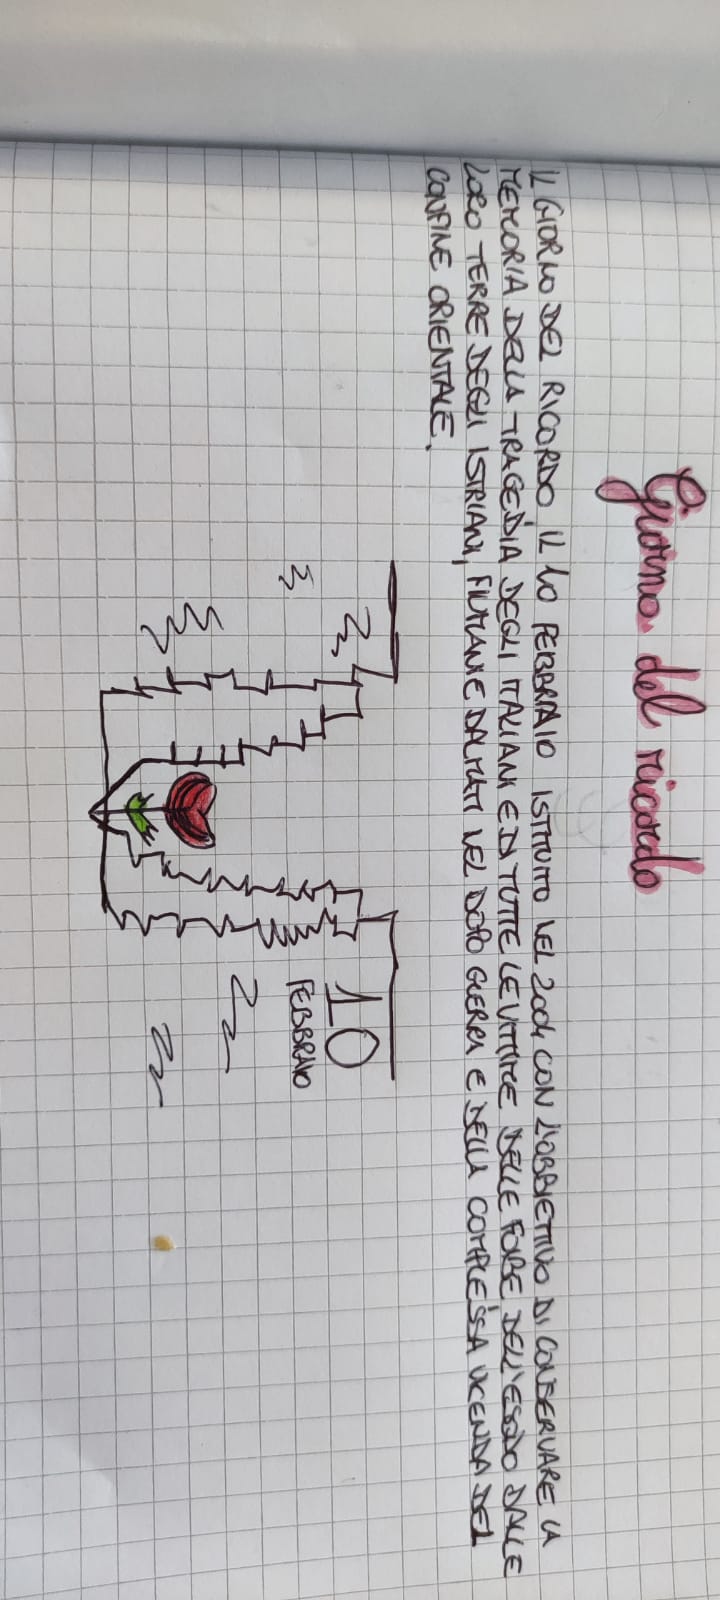 Giorno del ricordo
IL GIORNO DEL RICORDO IL 10 FEBBRAIO ISTITUITO NEL 2004 CON L'OBBIETTIVO DI CONSERVARE LA
MEMORIA DELLA TRAGEDIA DEGLI ITALIANI E DI TUTTE LE VITTIME DELLE FOIBE DELL'ESODO DALLE
LORO TERRE DEGLI ISTRIANI, FIUMANI E DALMATI NEL DOPO GUERRA E DELLA COMPLESSA VICENDA DEL
CONFINE ORIENTALE.
10
FEBBRAIO